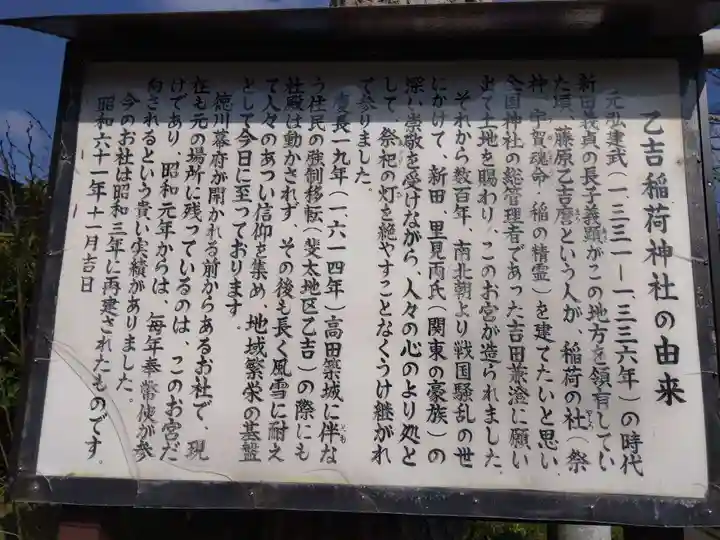 乙吉稲荷神社の由来
元弘建武（一、三三一ー一、三三六年）の時代
新田義貞の長子義顕がこの地方を領有してい
た頃、藤原乙吉麿まろという人が、稲荷の社やしろ（祭
神 宇賀魂命 稲の精霊）を建てたいと思い、
全国神社の総管理者であった吉田兼澄に願い
出て土地を賜わり、このお宮が造られました。
それから数百年、南北朝より戦国騒乱の世
にかけて、新田、里見両氏（関東の豪族）の
深い崇敬を受けながら、人々の心のより処と
して、祭祀の灯を絶やすことなくうけ継がれ
て参りました。
慶長一九年（一、六一四年）高田築城に伴ともな
う住民の強制移転（斐太地区乙吉）の際にも
社殿は動かされず、その後も長く風雪に耐え
て人々のあつい信仰を集め、地域繁栄の基盤
として今日に至っております。
徳川幕府が開かれる前からあるお社で、現
在も元の場所に残っているのは、このお宮だ
けであり、昭和元年からは、毎年奉幣使が参
向されるという貴い実績がありました。
今のお社は昭和三年に再建されたものです。
昭和六十一年十一月吉日